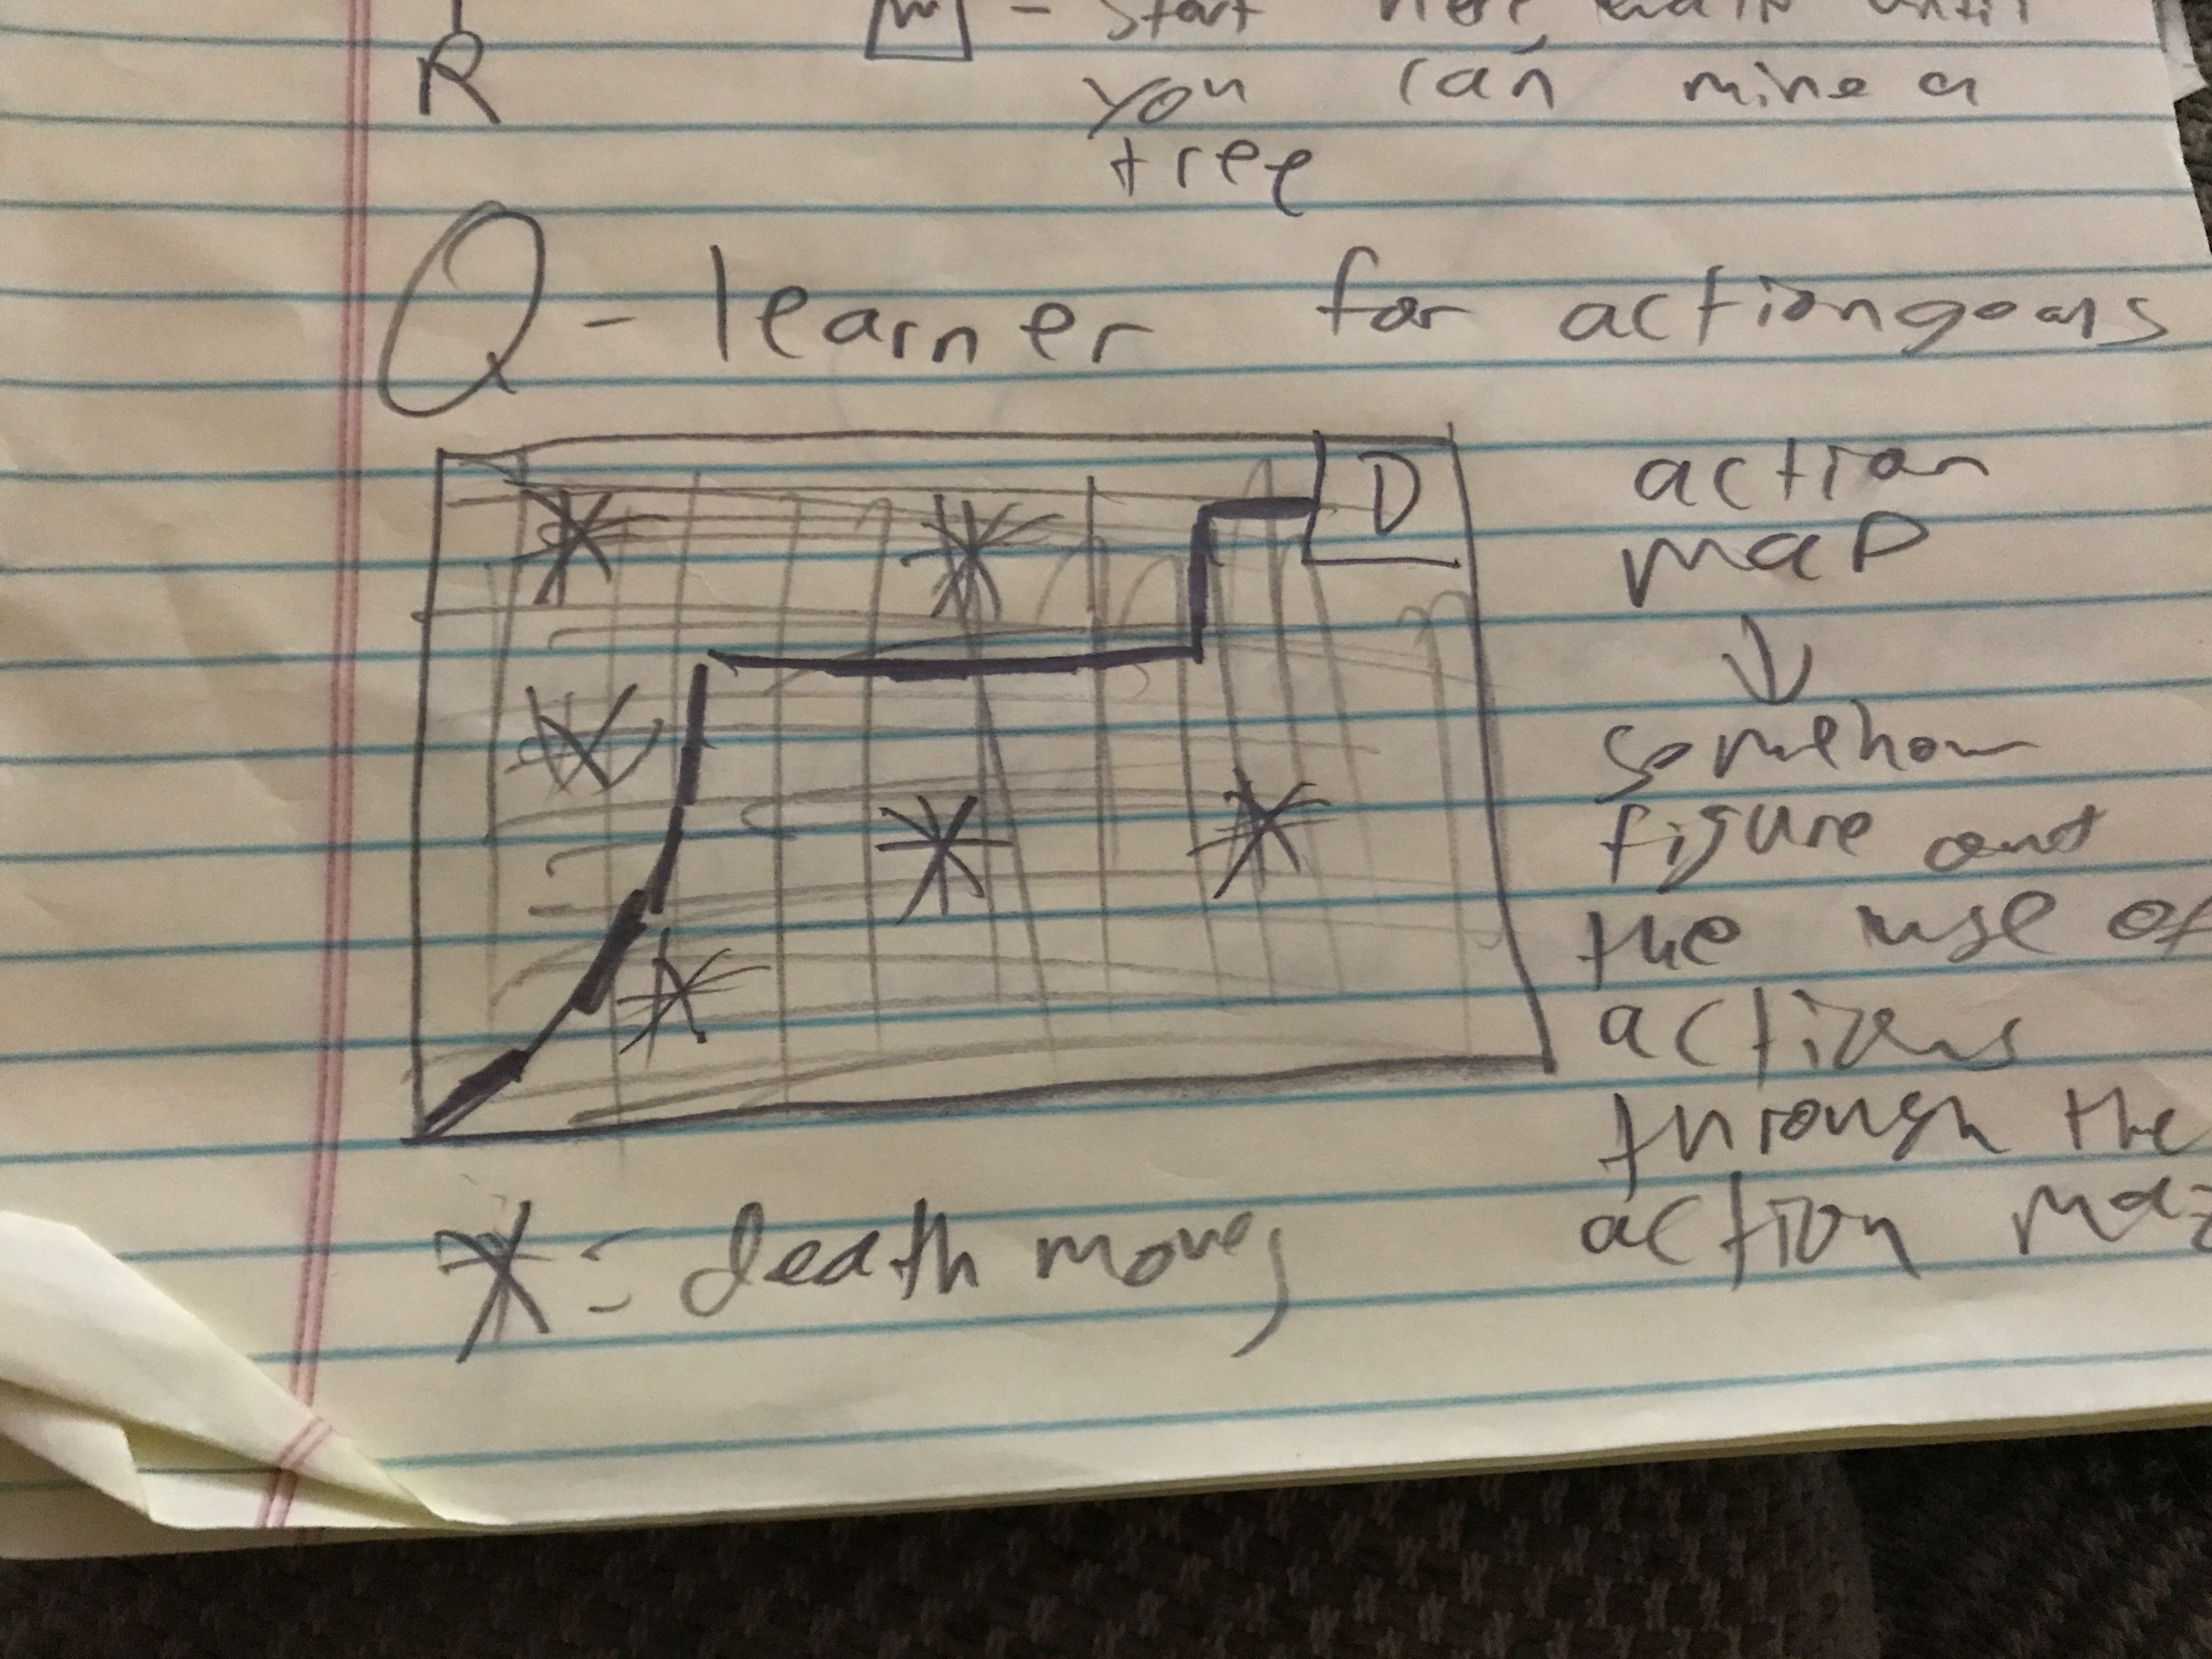 - start
You can mine a
tree
R
Q - learner for actiongoals
D
action
map
somehow
figure out
the use of
actions
through the
action
* : death move)